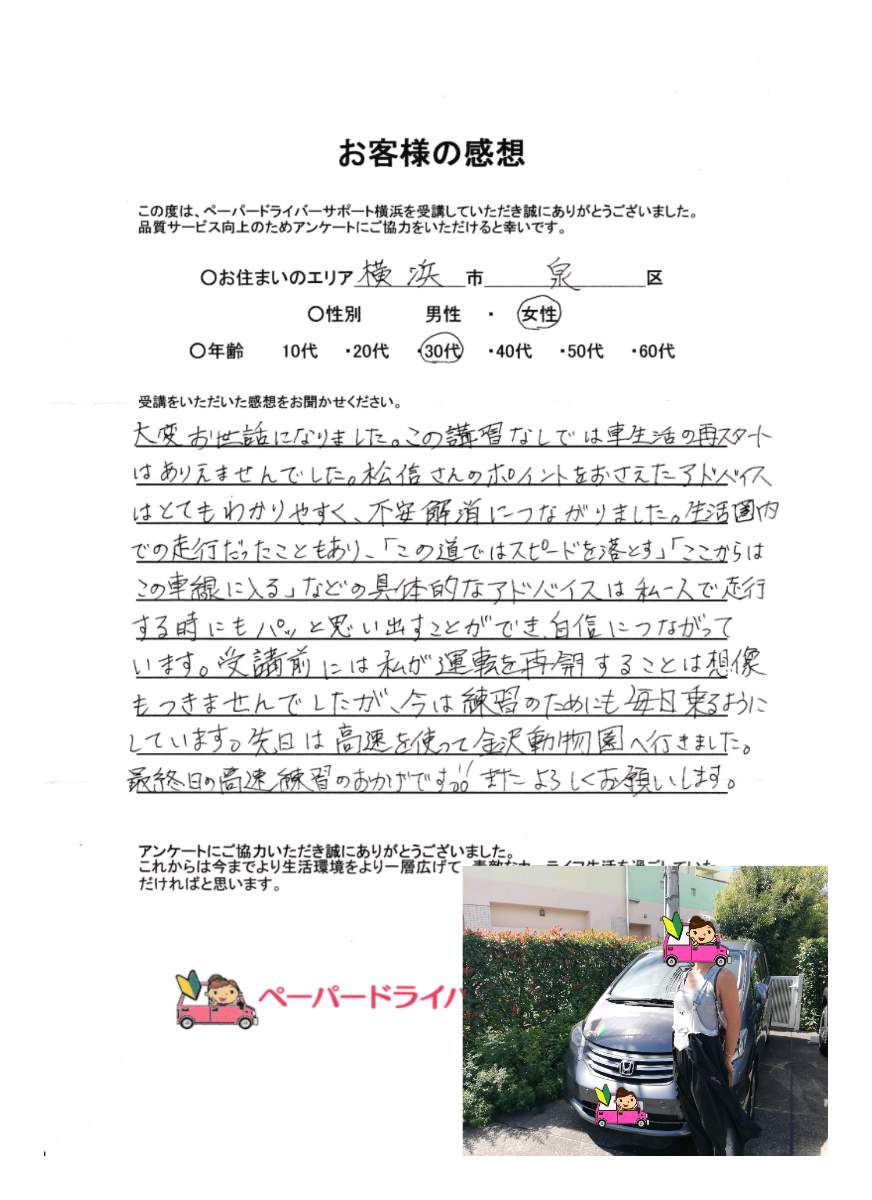 お客様の感想
この度は、ペーパードライバーサポート横浜を受講していただき誠にありがとうございました。
品質サービス向上のためアンケートにご協力をいただけると幸いです。
〇お住まいのエリア 横浜 市 泉 区
〇性別 男性 ・ 女性
〇年齢 10代 ・20代 ・30代 ・40代 ・50代 ・60代
受講をいただいた感想をお聞かせください。
大変お世話になりました。この講習なしでは車生活の再スタート
はありえませんでした。松信さんのポイントをおさえたアドバイス
はとてもわかりやすく、不安解消につながりました。生活圏内
での走行だったこともあり、「この道ではスピードを落とす」「ここからは
この車線に入る」などの具体的なアドバイスは私一人で走行
する時にもパッと思い出すことができ、自信につながって
います。受講前には私が運転を再開することは想像
もつきませんでしたが、今は練習のためにも毎日乗るように
しています。先日は高速を使って金沢動物園へ行きました。
最終日の高速練習のおかげです!! またよろしくお願いします。
アンケートにご協力いただき誠にありがとうございました。
これからは今までより生活環境をより一層広げて、素敵なカーライフ生活を過ごしていた
だければと思います。
ペーパードライバ